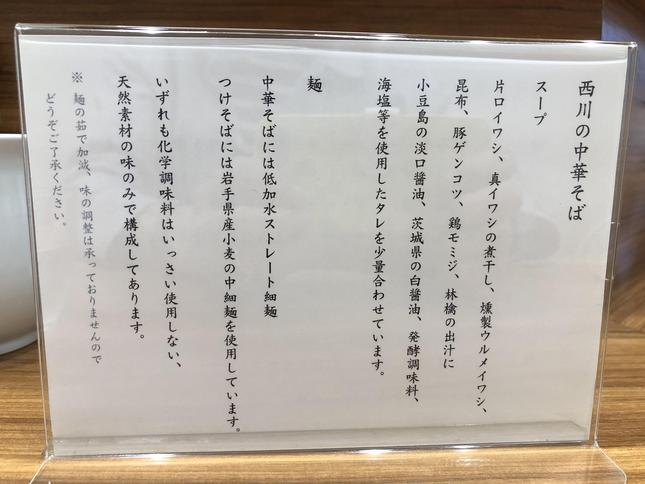 西川の中華そば
スープ
片口イワシ、真イワシの煮干し、燻製ウルメイワシ、
昆布、豚ゲンコツ、鶏モミジ、林檎の出汁に
小豆島の淡口醤油、茨城県の白醤油、発酵調味料、
海塩等を使用したタレを少量合わせています。
麺
中華そばには低加水ストレート細麺
つけそばには岩手県産小麦の中細麺を使用しています。
いずれも化学調味料はいっさい使用しない、
天然素材の味のみで構成してあります。
※ 麺の茹で加減、味の調整は承っておりませんので
どうぞご了承ください。